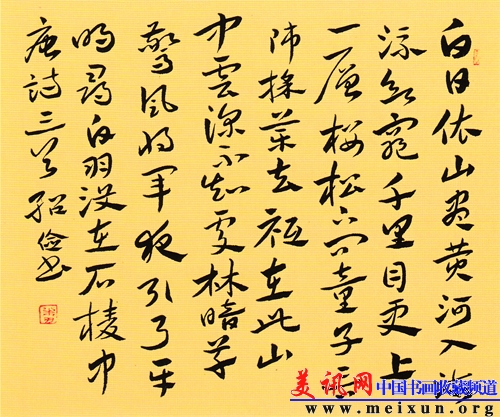 白日依山尽黄河入海
流欲穷千里目更上
一层楼松下问童子言
师採药去祗在此山
中云深不知处林暗草
惊风将军夜引弓平
明寻白羽没在石棱中
唐诗三首 绍俭书
美讯网 中国书画收藏频道
www.meixun.org